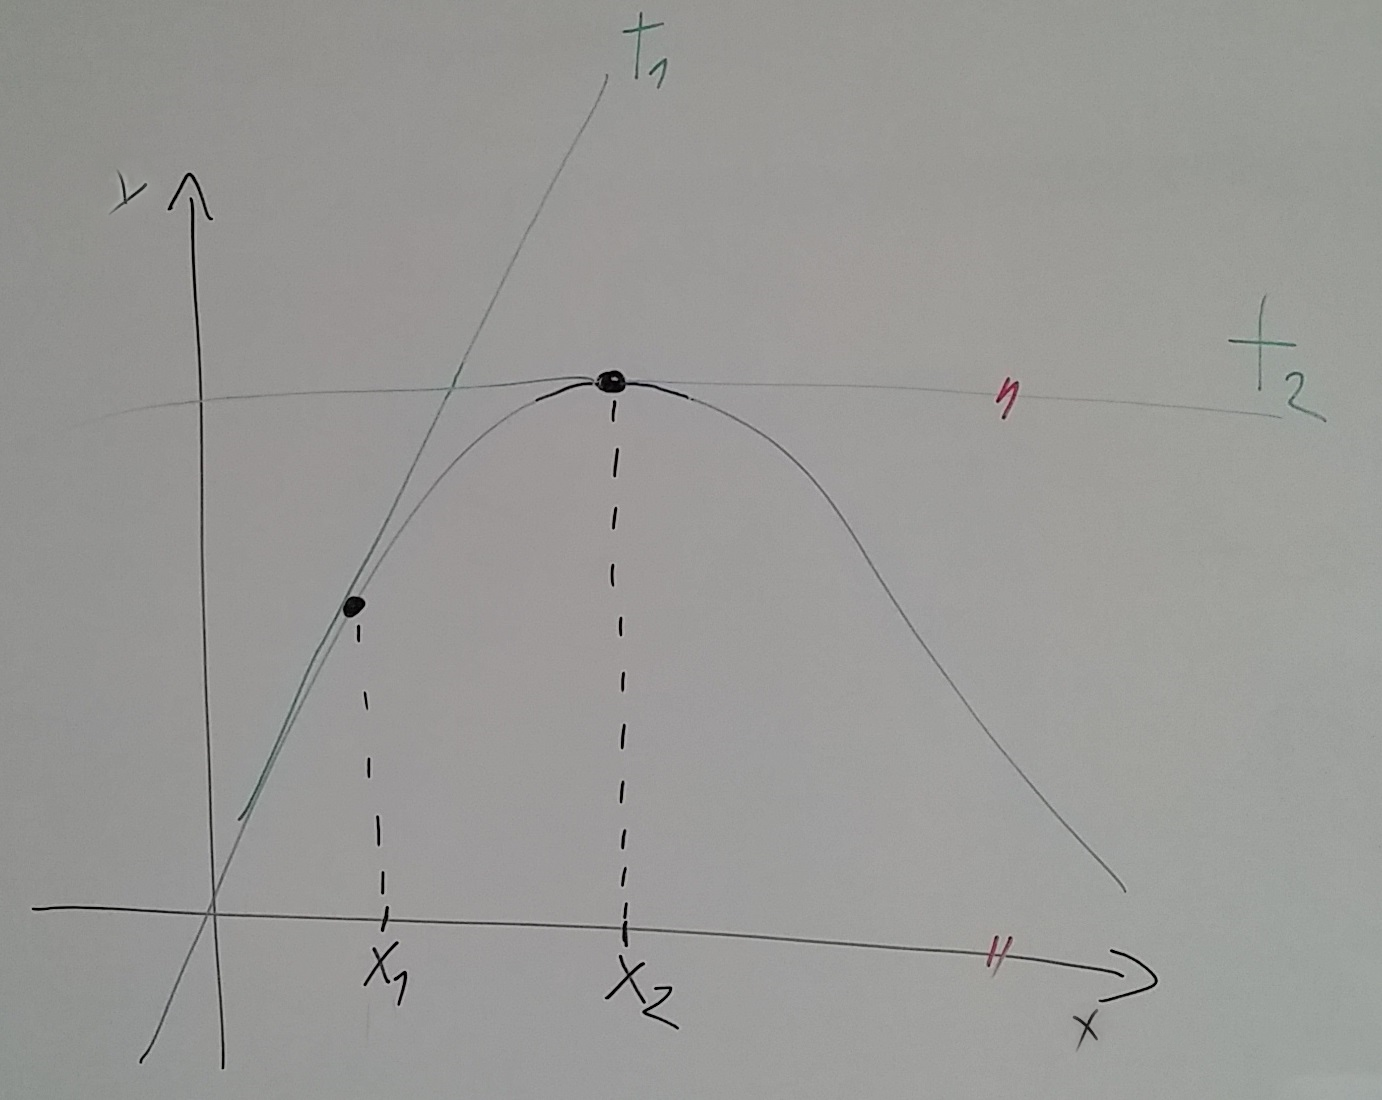 t₁
y
t₂
x₁
x₂
x